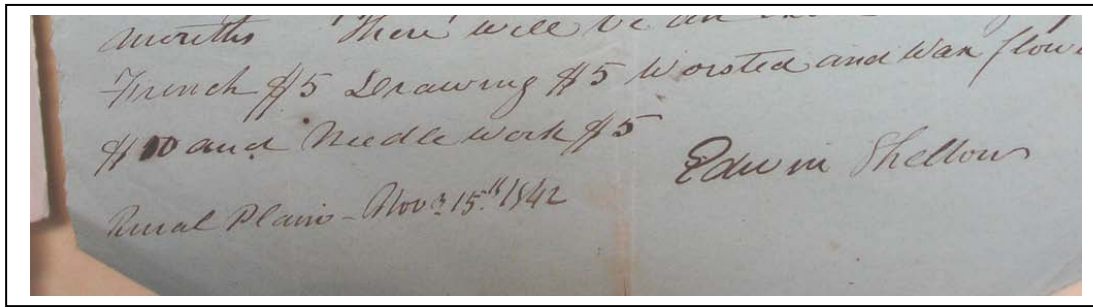 months There will be an
French $5 Drawing $5 Worsted and Wax flow
$10 and Needle work $5
Edwin Shelton
Rural Plain - Nov. 15th 1842